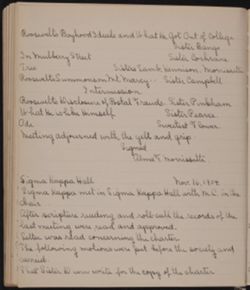 Roosevelt's Boyhood Ideals and What He Got Out of College
Sister Bangs
In Mulberry Street Sister Cochrane
Trio Sisters Lamb, Kennison, Morrissette
Roosevelt's Summons in Mt. Marcy - Sister Campbell
Intermission
Roosevelt's Disclosure of Postal Frauds. Sister Pinkham
What He is like Himself Sister Pearce
Ode Sweetest Flower
Meeting adjourned with the yell and grip
Signed
F. Morrissette
Sigma Kappa Hall Nov. 16, 1904
Sigma Kappa met in Sigma Kappa Hall with in the
chair
After scripture reading and roll-call the records of the
last meeting were read and approved.
Letter was read concerning the charter
The following motions were put before the society and
carried.
That Sister write for the copy of the charter